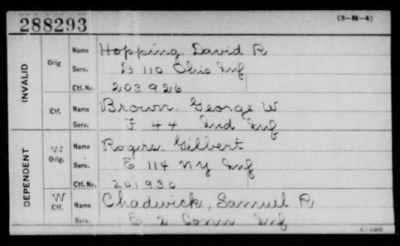 288293
(3-M-4)
INVALID
Orig
Name Hopping David R
Serv. D 110 Ohio Inf
Ctf. No. 203926
Ctf.
Name Brown George W
Serv. F 44 Ind Inf
DEPENDENT
W
Orig.
Name Rogers Gilbert
Serv. E 114 NY Inf
Ctf. No. 201930
W
Ctf.
Name Chadwick, Samuel R
Serv. E 2 Conn Inf